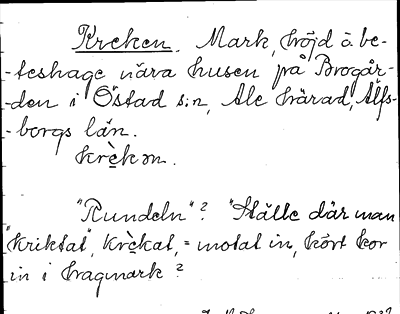 Kreken. Mark, höjd å be-
-teshage nära husen på Brogår-
-den i Östad s:n, Ale härad, Älfs-
-borgs län.
krèkən.
"Rundeln"? "Ställe där man
"kriktat", krèkat, = motat in, kört kor
in i hagmark?